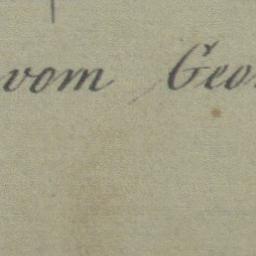 vom Geo